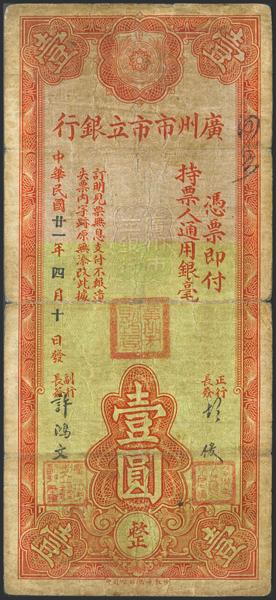 壹 壹
廣州市市立銀行
憑票即付
持票人通用銀毫
訂明見票無息支付不掛清
失票內字跡原無添改此據
中華民國廿一年四月十日發
壹圓
整
正行長發
副行長發
許鴻文
壹 壹